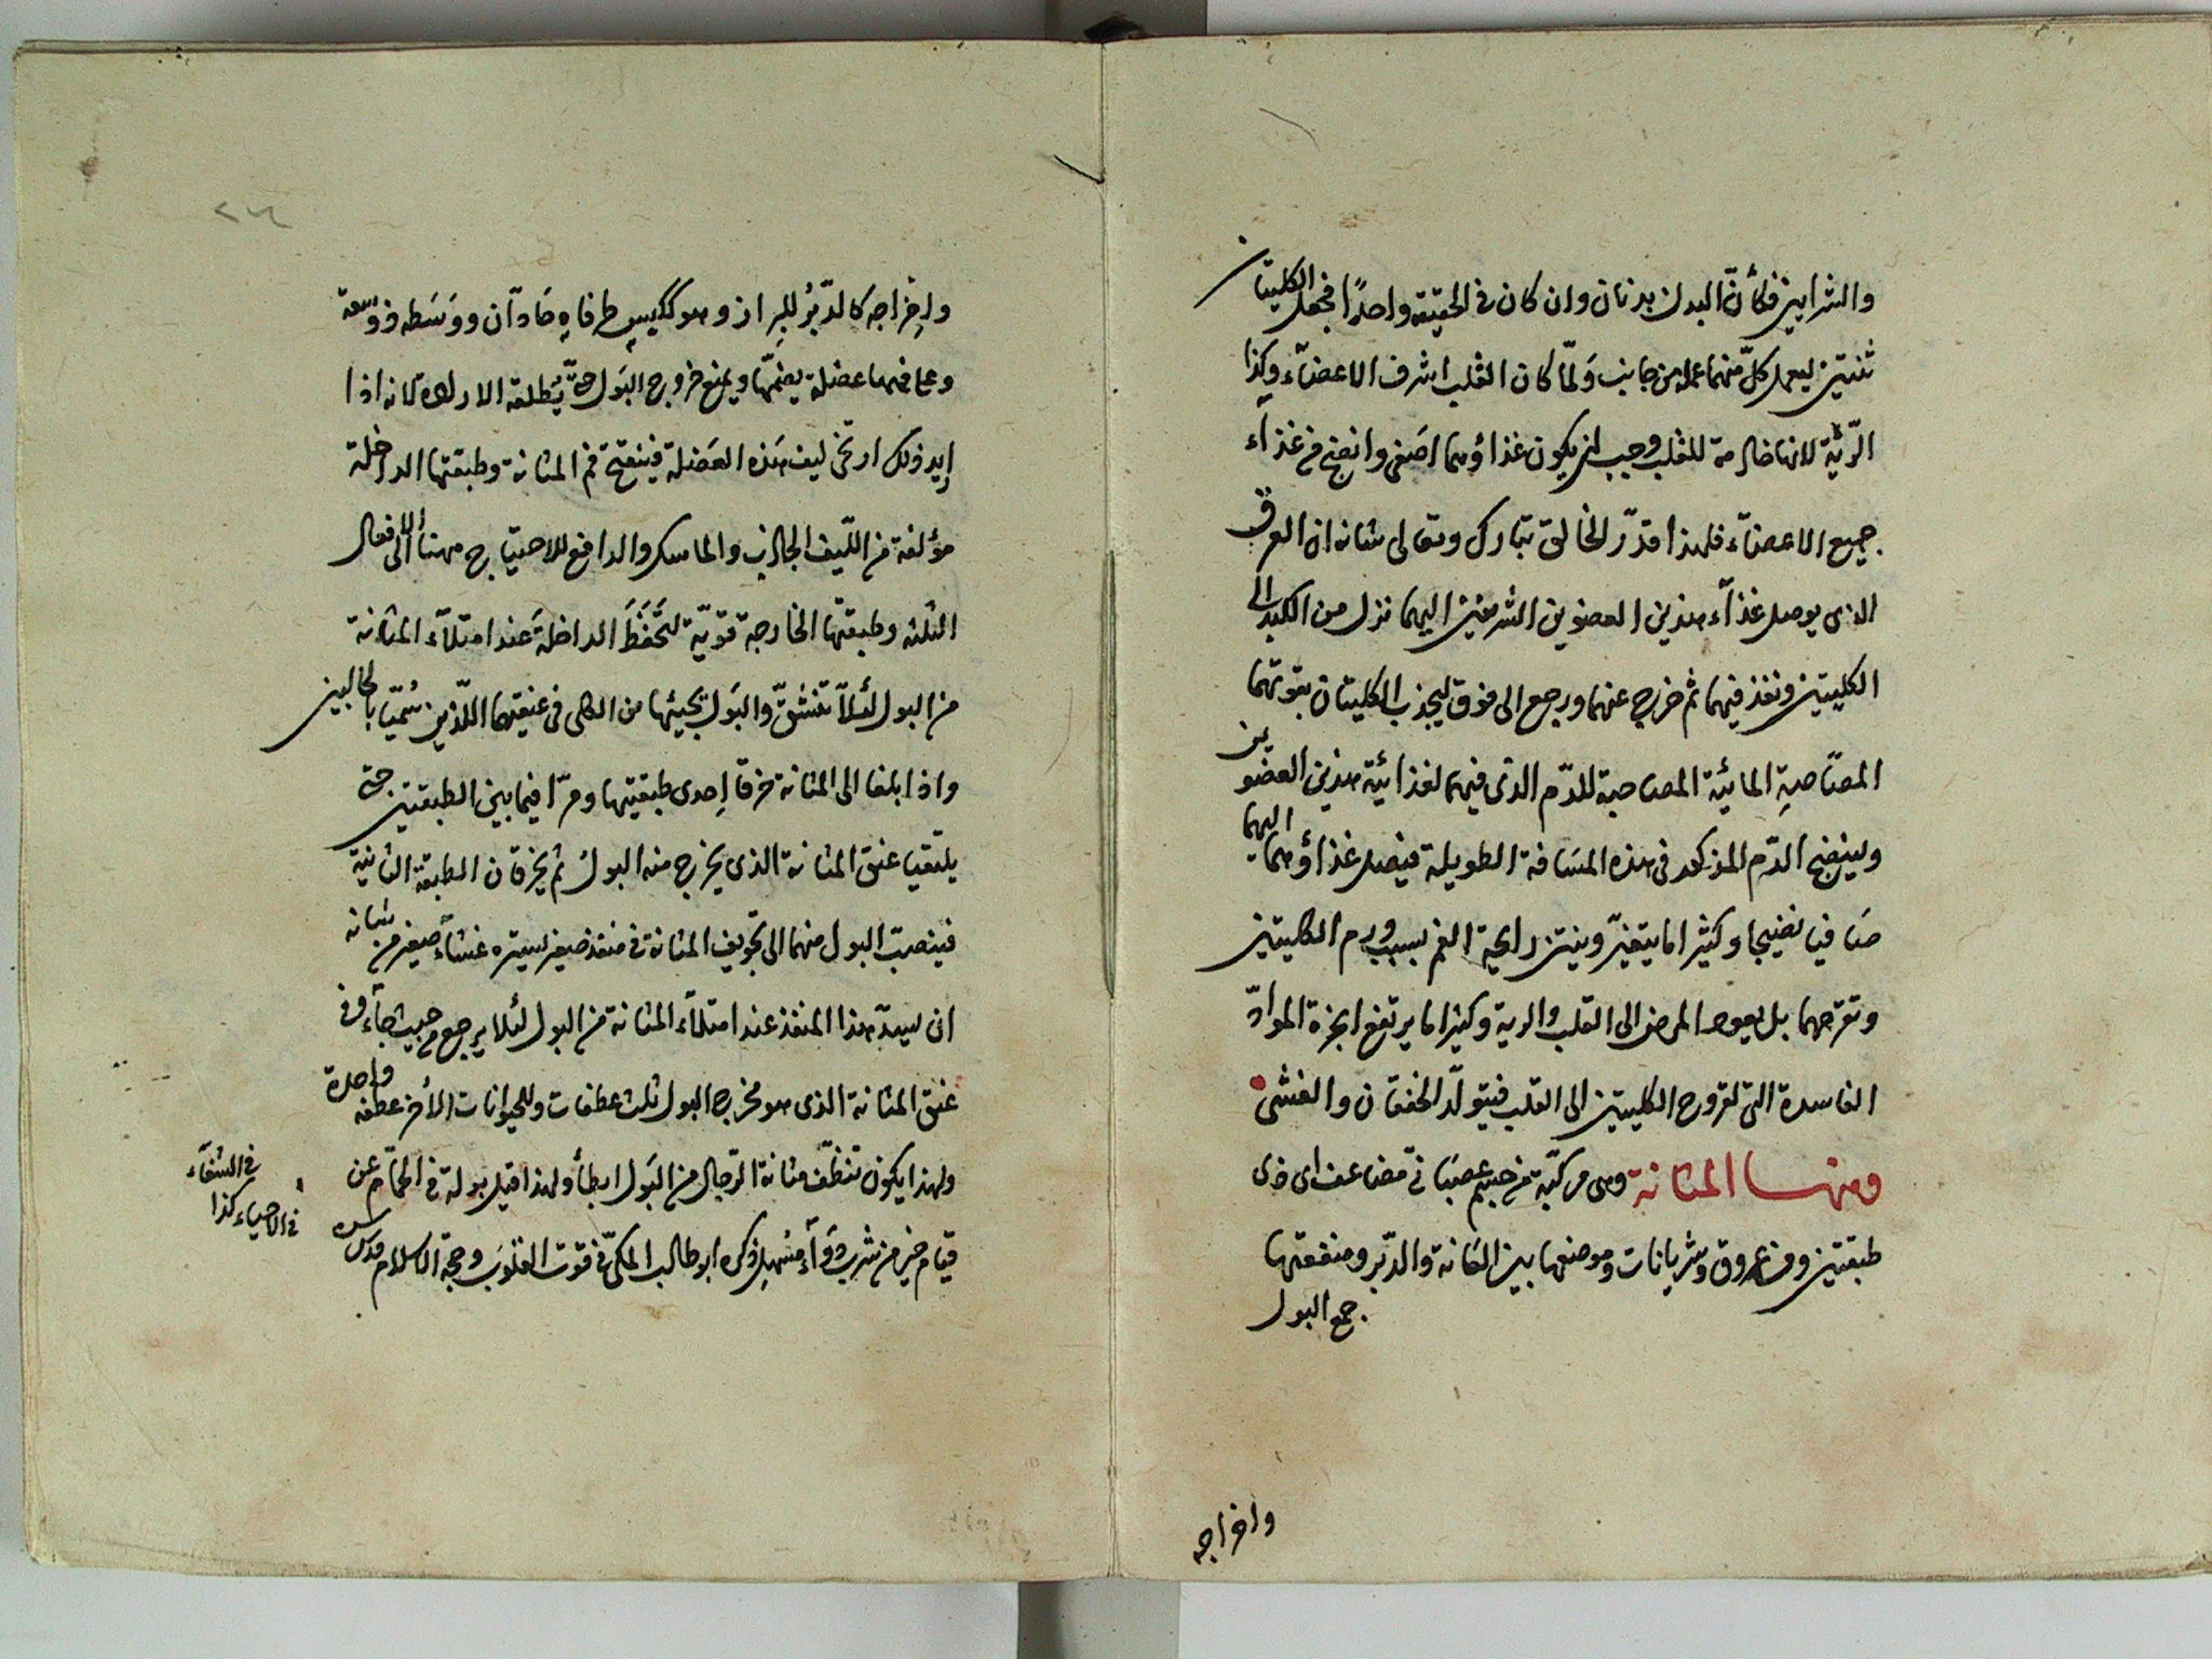 والشرايين فكأنّ البدن بدنان وان كان فى الحقيقة واحدًا فجعل الكليتان
ثنتين ليعمل كلّ منهما عمله من جانب وَلمّا كان القلب اشرف الاعضآء وكذا
الرّئة لانها خادمة للقلب وجب ان يكون غذاؤهما اصَفى وانضج من غذآء
جميع الاعضآء فلهذا قدّر الخالق تبارك وتعالى شانه ان العرق
الذى يوصل غذآء هذين العضوين الشريفين اليهما نزل من الكبد الى
الكليتين ونفذ فيهما ثم خرج عنهما ورجع الى فوق ليجذب الكليتان بقوتهما
المصّاصةِ المائيّة المصاحبة للدّم الذى فيهما لغذائيّة هذين العضوين
ولينضج الدّم المذكور فى هذه المسَافة الطويلة فيصل غذاؤهما اليهما
صَافيا نضيجا وكثيرا ما يتغيّر وينتن رايحة الفم بسبب ورم الكليتين
وتقرحهما بل يعود المرض الى القلب والرية وكثيرا ما يرتفع ابخرة الموادّ
الفاسدة التى لقروح الكليتين الى القلب فيتولّد الخفقان والغشى
ومنهــا المثانة وهى مركّبة من جسم عصبَانىّ مضاعف اى ذى
طبقتين ومن عروق وشريانات وموضعها بين العَانة والدّبر ومنفعتها
جمع البول
واخراجه
واخِراجه كالدّبُرُ للبِراز وهو ككيسٍ طرفاهِ حَادّآن ووَسَطه ذو سَعة
وعلى فمها عضلة يضمّها ويمنع خروج البَول حتّى يُطلقه الارادة لانه اذا
اُرِيد ذلك ارتخى ليف هَذه العضَلة فينفتح فم المثانة وطبقتها الداخلة
مؤلفة من اللّيف الجاذب والماسك والدافع للاحتياج ههنا الى الافعال
الثلثه وطبقتها الخارجة قويّة لتَحْفَظَ الداخلةَ عند امتلآء المثانة
من البول لئلاّ تنشقّ والبَول يجيئها من الكلى فى عنقيها اللّذين سُميّا بالحالبين
واذا بلغا الى المثانة خرقا اِحدى طبقتيها ومرّا فيما بين الطبقتين حتى
يلتقيا عنق المثانة الذى يخرج منه البول ثم يخرقان الطبقة الثانية
فينصبّ البول منهما الى تجويف المثانة فى منفذ صغير يستره غشاء صغير من شانه
ان يسدّ هذا المنفذ عند امتلآء المثانة من البول لئلا يرجع من حيث جآء وفى
عنق المثانة الذى هو مخرج البول ثلث عطفات وللحيوانات الأخر عطفة واحدة
ولهذا يكون تنظّف مثانة الرّجال من البَول ابطأ ولهذا قيل بولة فى الحمّام عن
قيام خير من شرب دوَآء مُسهل ذكره ابو طالب المكىّ فى قوت القلوب وحجة الاسلام قدّس سره
فى الشتآء
فى الاحياء كذا